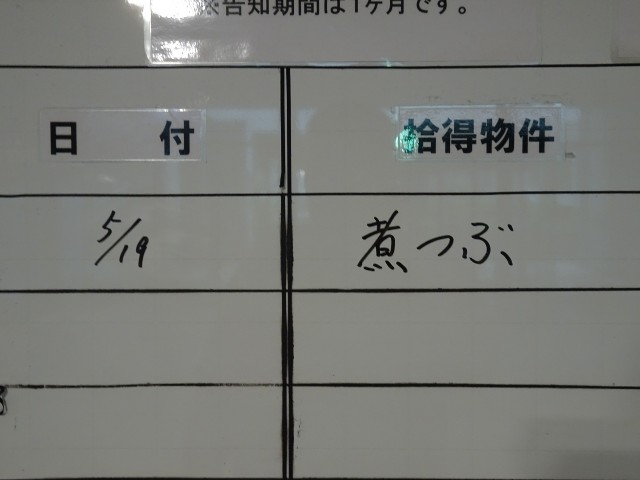 ※告知期間は1ヶ月です。
日 付
拾得物件
5/19
煮つぶ